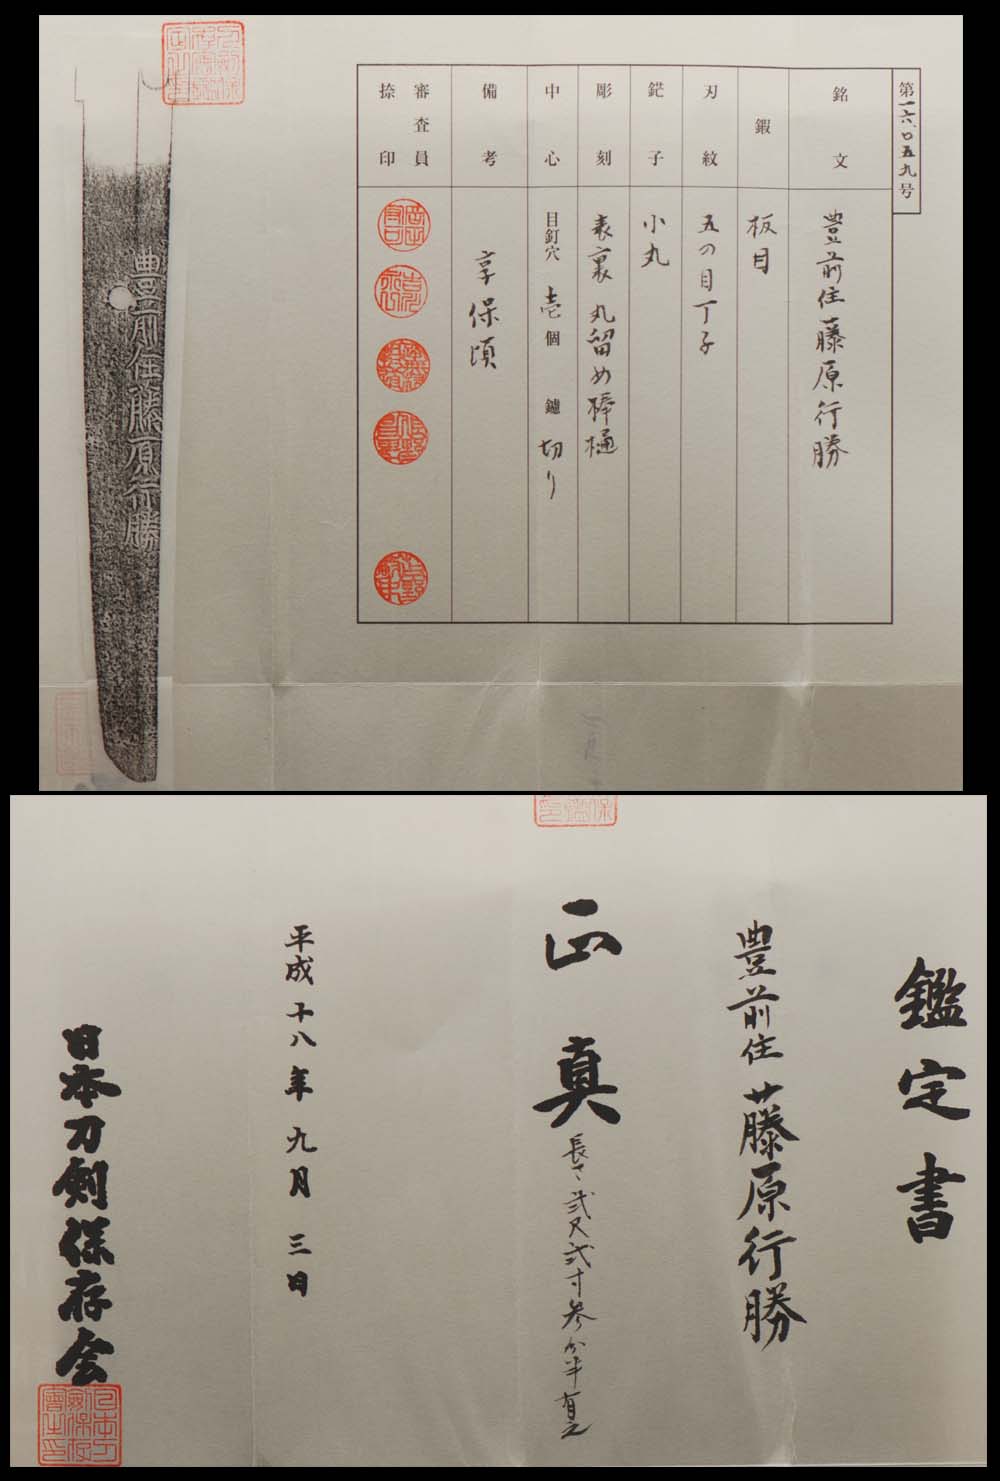 第一六〇五九号
銘文
豊前住藤原行勝
鍜
板目
刃紋
五の目丁子
鋩子
小丸
彫刻
表裏丸留め棒樋
中心
目釘穴 壱個 鑢 切り
備考
享保頃
審査員
捺印
豊前住藤原行勝
鑑定書
豊前住藤原行勝
正真
長さ弐尺弐寸参分半有之
平成十八年九月三日
日本刀剣保存会